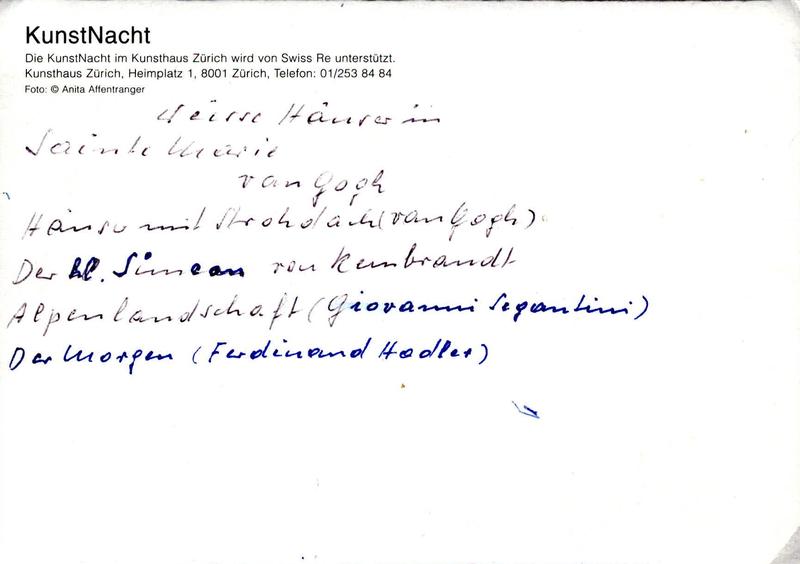 KunstNacht
Die KunstNacht im Kunsthaus Zürich wird von Swiss Re unterstützt.
Kunsthaus Zürich, Heimplatz 1, 8001 Zürich, Telefon: 01/253 84 84
Foto: © Anita Affentranger
Weisse Häuser in
Sainte Marie
van Gogh
Häuser mit Strohdach (van Gogh)
Der hl. Simeon von Rembrandt
Alpenlandschaft (Giovanni Segantini)
Der Morgen (Ferdinand Hodler)